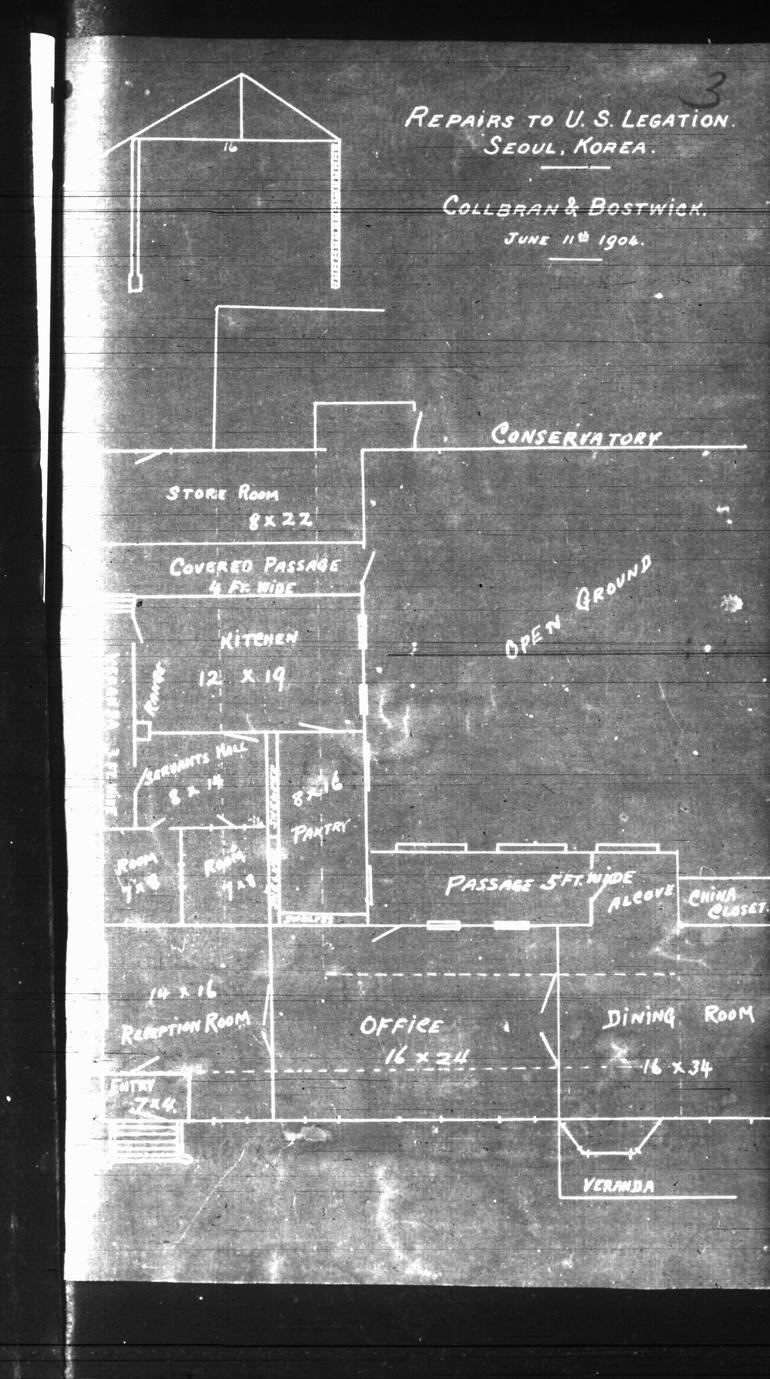 3
REPAIRS TO U. S. LEGATION.
SEOUL, KOREA.
COLLBRAN & BOSTWICK.
JUNE 11th 1904.
16
CONSERVATORY
STORE ROOM
8 X 22
COVERED PASSAGE
4 FT. WIDE
OPEN GROUND
KITCHEN
12 X 19
RANGE
SERVANTS HALL
8 X 14
8 X 16
PANTRY
ROOM
7 X 8
ROOM
7 X 8
SHELVES
PASSAGE 5 FT. WIDE
ALCOVE
CHINA
CLOSET.
14 X 16
RECEPTION ROOM
OFFICE
16 X 24
DINING ROOM
16 X 34
ENTRY
7 X 4
VERANDA